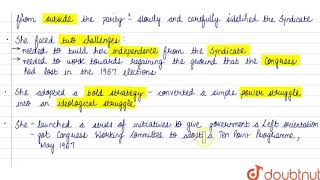 from outside the party - slowly and carefully sidelined the Syndicate
• She faced two challenges:
→ needed to build her independence from the Syndicate
→ needed to work towards regaining the ground that the Congress
had lost in the 1967 elections
• She adopted a bold strategy - converted a simple power struggle
into an ideological struggle
• She - launched a series of initiatives to give government a Left orientation
- got Congress Working Committee to adopt a Ten Point Programme,
May 1967
doubtnut